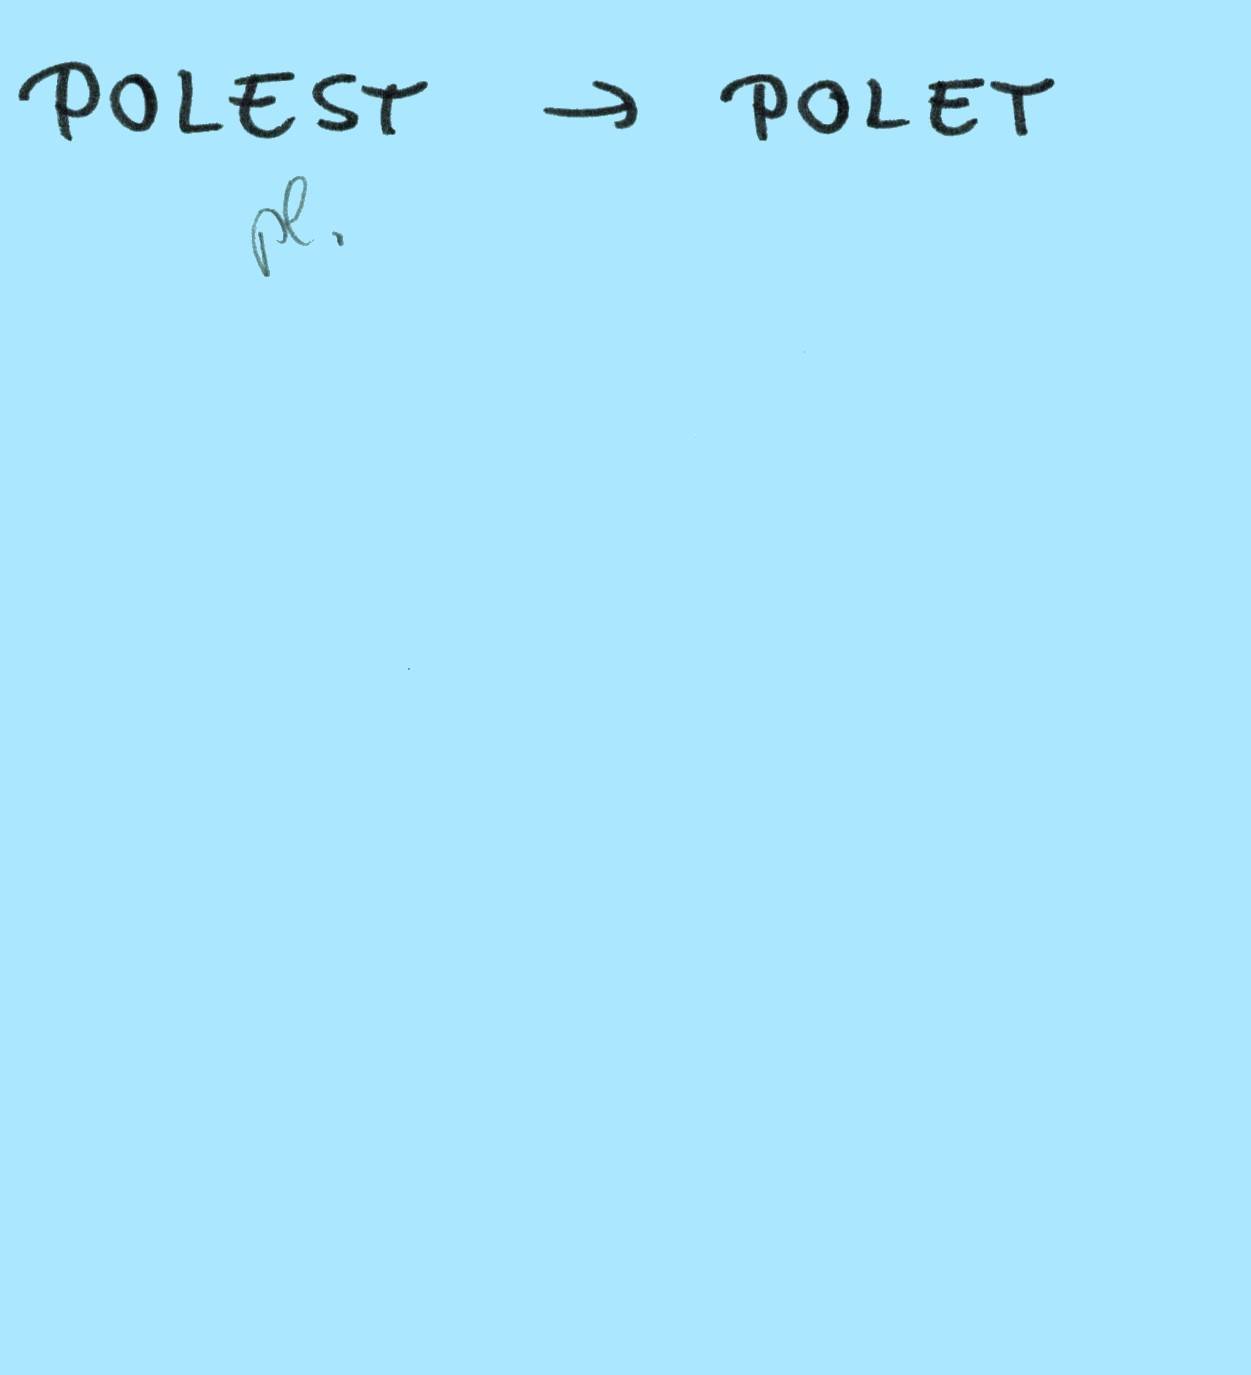 POLEST → POLET
pl.